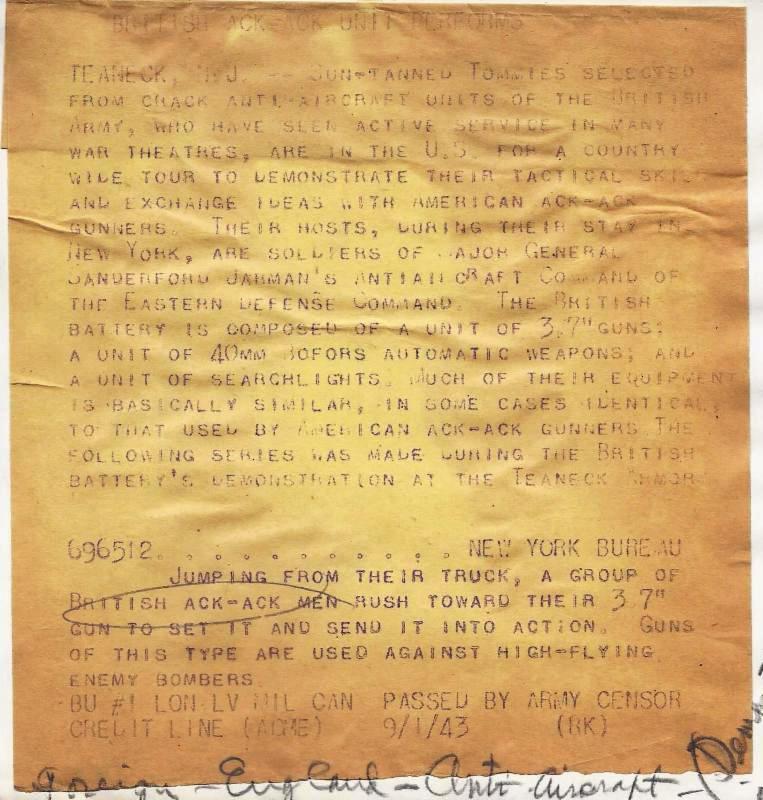 BRITISH ACK-ACK UNIT PERFORMS
TEANECK, N.J. -- SUN-TANNED TOMMIES SELECTED
FROM CRACK ANTI-AIRCRAFT UNITS OF THE BRITISH
ARMY, WHO HAVE SEEN ACTIVE SERVICE IN MANY
WAR THEATRES, ARE IN THE U.S. FOR A COUNTRY
WIDE TOUR TO DEMONSTRATE THEIR TACTICAL SKILL
AND EXCHANGE IDEAS WITH AMERICAN ACK-ACK
GUNNERS. THEIR HOSTS, DURING THEIR STAY IN
NEW YORK, ARE SOLDIERS OF MAJOR GENERAL
SANDERFORD JARMAN'S ANTIAIRCRAFT COMMAND OF
THE EASTERN DEFENSE COMMAND. THE BRITISH
BATTERY IS COMPOSED OF A UNIT OF 3.7" GUNS;
A UNIT OF 40MM BOFORS AUTOMATIC WEAPONS; AND
A UNIT OF SEARCHLIGHTS. MUCH OF THEIR EQUIPMENT
IS BASICALLY SIMILAR, IN SOME CASES IDENTICAL,
TO THAT USED BY AMERICAN ACK-ACK GUNNERS. THE
FOLLOWING SERIES WAS MADE DURING THE BRITISH
BATTERY'S DEMONSTRATION AT THE TEANECK ARMOR
696512. . . . . . . . . . . NEW YORK BUREAU
JUMPING FROM THEIR TRUCK, A GROUP OF
BRITISH ACK-ACK MEN RUSH TOWARD THEIR 3.7"
GUN TO SET IT AND SEND IT INTO ACTION. GUNS
OF THIS TYPE ARE USED AGAINST HIGH-FLYING
ENEMY BOMBERS.
BU #1 LON LV MIL CAN PASSED BY ARMY CENSOR
CREDIT LINE (ACME) 9/1/43 (RK)
Foreign - England - Anti Aircraft -